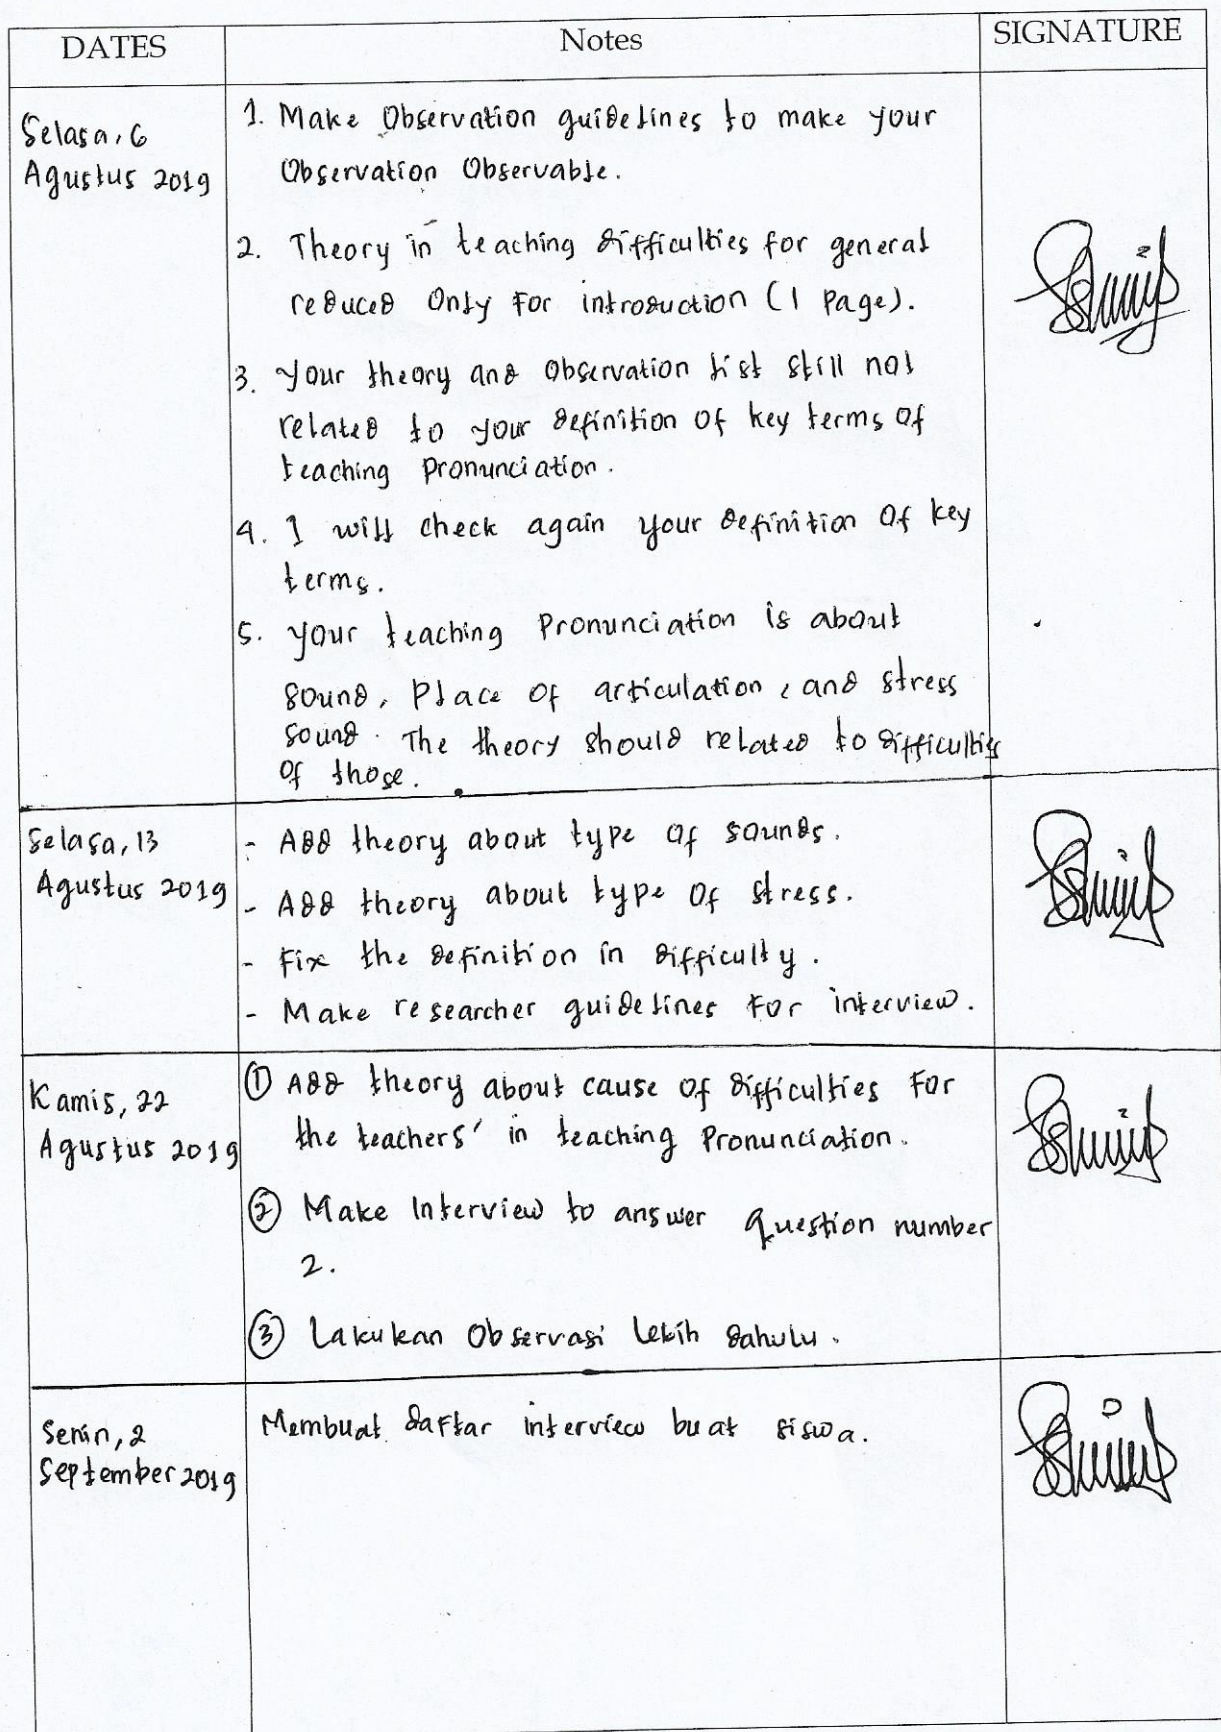 DATES
Notes
SIGNATURE
Selasa, 6
Agustus 2019
1. Make Observation guidelines to make your
Observation Observable.
2. Theory in teaching difficulties for general
reduced Only For introduction (1 Page).
3. Your theory and Observation list still not
related to your definition of key terms of
teaching Pronunciation.
4. I will check again your definition Of key
terms.
5. your teaching Pronunciation is about
sound, Place of articulation, and stress
sound. The theory should related to difficulties
of those.
Selasa, 13
Agustus 2019
- Add theory about type of sounds.
- Add theory about type Of stress.
- Fix the definition in difficulty.
- Make researcher guidelines For interview.
Kamis, 22
Agustus 2019
① Add theory about cause of difficulties For
the teachers' in teaching Pronunciation.
② Make Interview to answer question number
2.
③ Lakukan Observasi Lebih dahulu.
Senin, 2
September 2019
Membuat daftar interview buat siswa.